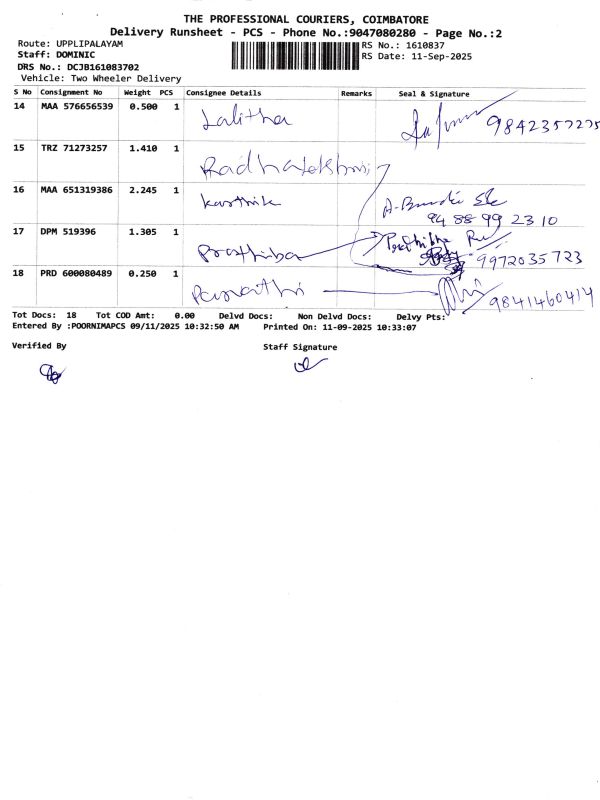 THE PROFESSIONAL COURIERS, COIMBATORE
Delivery Runsheet - PCS - Phone No.:9047080280 - Page No.:2
Route: UPPLIPALAYAM RS No.: 1610837
Staff: DOMINIC RS Date: 11-Sep-2025
DRS No.: DCJB161083702
Vehicle: Two Wheeler Delivery
S No Consignment No Weight PCS Consignee Details Remarks Seal & Signature
14 MAA 576656539 0.500 1 Lalitha 9842357275
15 TRZ 71273257 1.410 1 Radhalakshmi
16 MAA 651319386 2.245 1 Karthik
94 88 99 2310
17 DPM 519396 1.305 1 Prathiba 9972035723
18 PRD 600080489 0.250 1 Parvathi 9841460414
Tot Docs: 18 Tot COD Amt: 0.00 Delvd Docs: Non Delvd Docs: Delvy Pts:
Entered By :POORNIMAPCS 09/11/2025 10:32:50 AM Printed On: 11-09-2025 10:33:07
Verified By Staff Signature